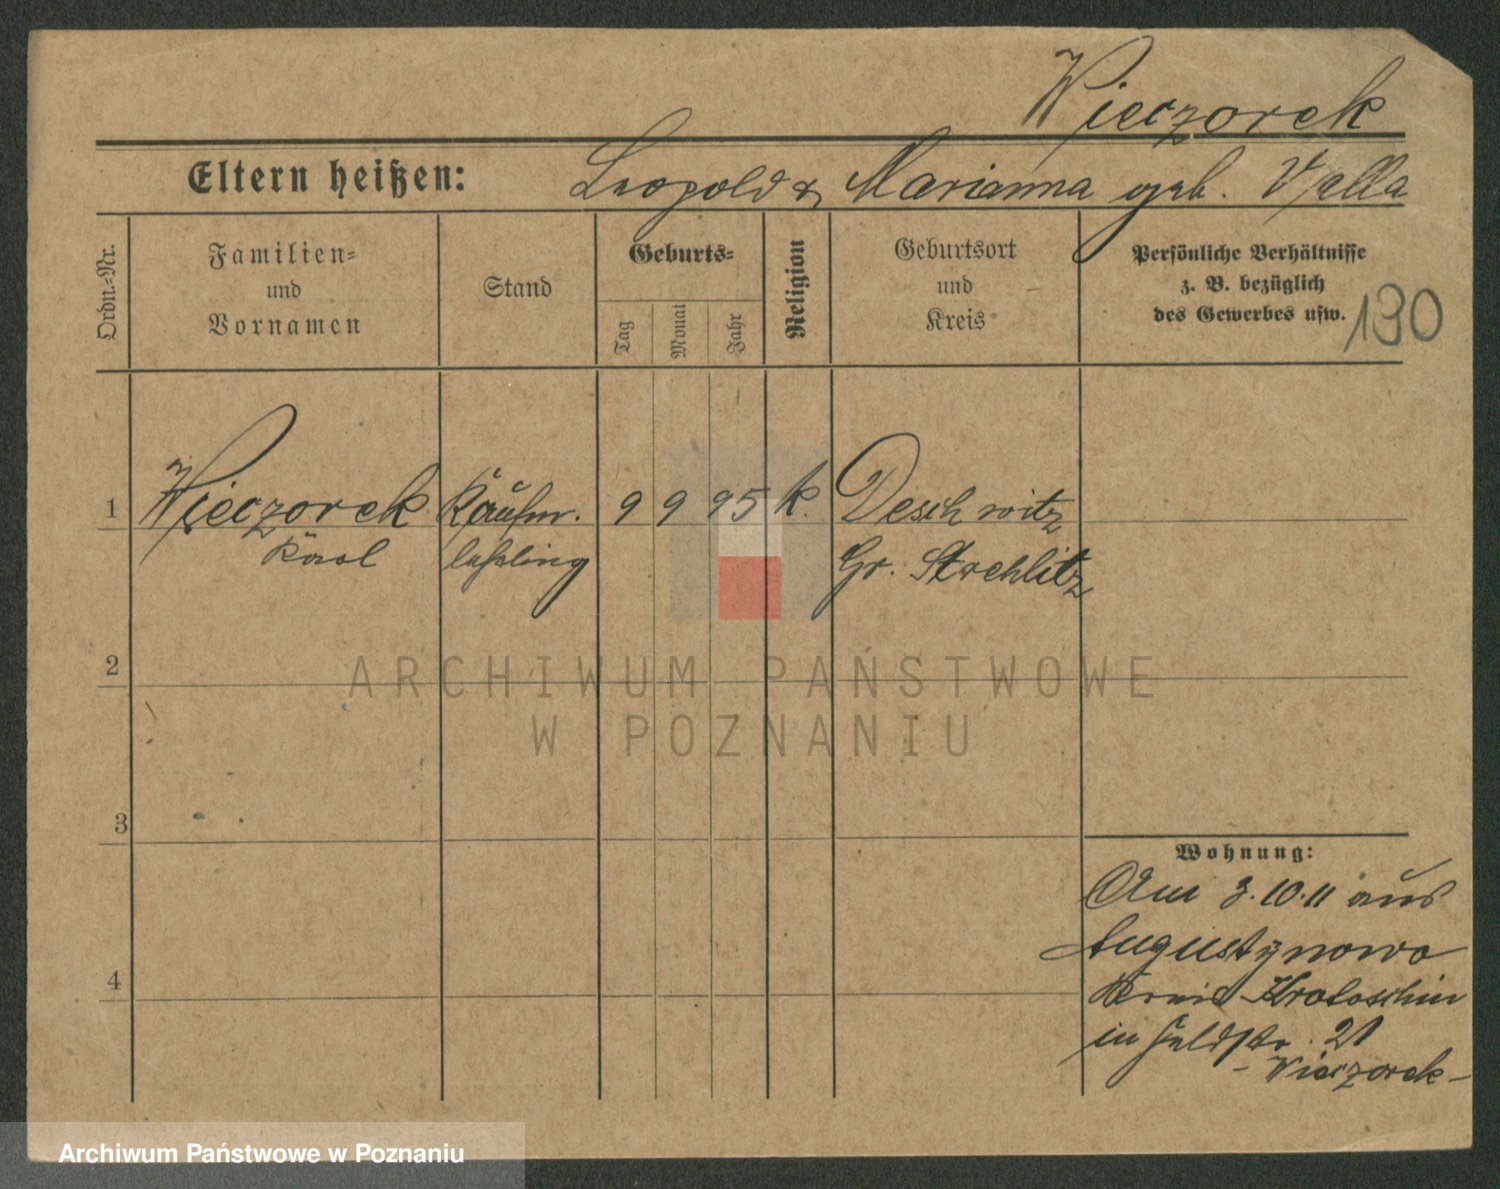 Wieczorek
Eltern heißen: Leopold & Marianna geb. Valla
Ordn.-Nr.
Familien-
und
Vornamen
Stand
Geburts-
Tag
Monat
Jahr
Religion
Geburtsort
und
Kreis
Persönliche Verhältnisse
z. B. bezüglich
des Gewerbes usw.
130
1 Wieczorek Kaufm. 9 9 95 k. Deschwitz
Karl lehrling Gr. Strehlitz
2
3
4
Wohnung:
Am 3.10.11 aus
Augustynowo
Kreis Krotoschin
in Feldstr. 21
- Wieczorek -
ARCHIWUM PAŃSTWOWE
W POZNANIU
Archiwum Państwowe w Poznaniu